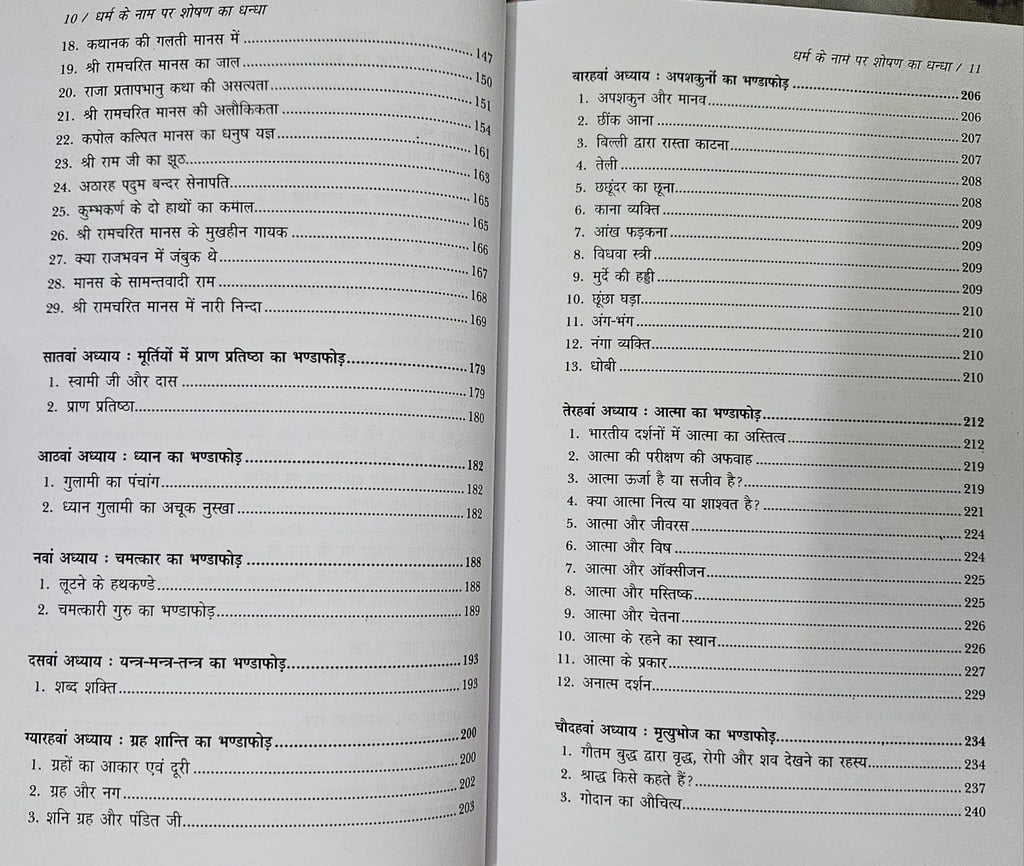 10 / धर्म के नाम पर शोषण का धन्धा
18. कथानक की गलती मानस में ........ 147
19. श्री रामचरित मानस का जाल ........ 150
20. राजा प्रतापभानु कथा की असत्यता ........ 151
21. श्री रामचरित मानस की अलौकिकता ........ 154
22. कपोल कल्पित मानस का धनुष यज्ञ ........ 161
23. श्री राम जी का झूठ ........ 163
24. अठारह पदुम बन्दर सेनापति ........ 165
25. कुम्भकर्ण के दो हाथों का कमाल ........ 165
26. श्री रामचरित मानस के मुखहीन गायक ........ 166
27. क्या राजभवन में जंबुक थे ........ 167
28. मानस के सामन्तवादी राम ........ 168
29. श्री रामचरित मानस में नारी निन्दा ........ 169
सातवां अध्याय : मूर्तियों में प्राण प्रतिष्ठा का भण्डाफोड़ ........ 179
1. स्वामी जी और दास ........ 179
2. प्राण प्रतिष्ठा ........ 180
आठवां अध्याय : ध्यान का भण्डाफोड़ ........ 182
1. गुलामी का पंचांग ........ 182
2. ध्यान गुलामी का अचूक नुस्खा ........ 182
नवां अध्याय : चमत्कार का भण्डाफोड़ ........ 188
1. लूटने के हथकण्डे ........ 188
2. चमत्कारी गुरु का भण्डाफोड़ ........ 189
दसवां अध्याय : यन्त्र-मन्त्र-तन्त्र का भण्डाफोड़ ........ 193
1. शब्द शक्ति ........ 193
ग्यारहवां अध्याय : ग्रह शान्ति का भण्डाफोड़ ........ 200
1. ग्रहों का आकार एवं दूरी ........ 200
2. ग्रह और नग ........ 202
3. शनि ग्रह और पंडित जी ........ 203
धर्म के नाम पर शोषण का धन्धा / 11
बारहवां अध्याय : अपशकुनों का भण्डाफोड़ ........ 206
1. अपशकुन और मानव ........ 206
2. छींक आना ........ 207
3. बिल्ली द्वारा रास्ता काटना ........ 207
4. तेली ........ 208
5. छछूंदर का छूना ........ 208
6. काना व्यक्ति ........ 209
7. आंख फड़कना ........ 209
8. विधवा स्त्री ........ 209
9. मुर्दे की हड्डी ........ 209
10. छूंछा घड़ा ........ 210
11. अंग-भंग ........ 210
12. नंगा व्यक्ति ........ 210
13. धोबी ........ 210
तेरहवां अध्याय : आत्मा का भण्डाफोड़ ........ 212
1. भारतीय दर्शनों में आत्मा का अस्तित्व ........ 212
2. आत्मा की परीक्षण की अफवाह ........ 219
3. आत्मा ऊर्जा है या सजीव है? ........ 219
4. क्या आत्मा नित्य या शाश्वत है? ........ 221
5. आत्मा और जीवरस ........ 224
6. आत्मा और विष ........ 224
7. आत्मा और ऑक्सीजन ........ 225
8. आत्मा और मस्तिष्क ........ 225
9. आत्मा और चेतना ........ 226
10. आत्मा के रहने का स्थान ........ 226
11. आत्मा के प्रकार ........ 227
12. अनात्म दर्शन ........ 229
चौदहवां अध्याय : मृत्युभोज का भण्डाफोड़ ........ 234
1. गौतम बुद्ध द्वारा वृद्ध, रोगी और शव देखने का रहस्य ........ 234
2. श्राद्ध किसे कहते हैं? ........ 237
3. गोदान का औचित्य ........ 240